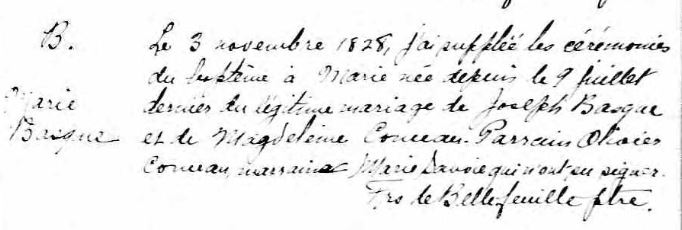 B.
Marie
Basque
Le 3 novembre 1828, j'ai suppléé les cérémonies
du baptême à Marie née depuis le 9 juillet
dernier du légitime mariage de Joseph Basque
et de Magdeleine Comeau. Parrain Olivier
Comeau, marraine Marie Savoie qui n'ont pu signer.
Frs de Bellefeuille ptre.